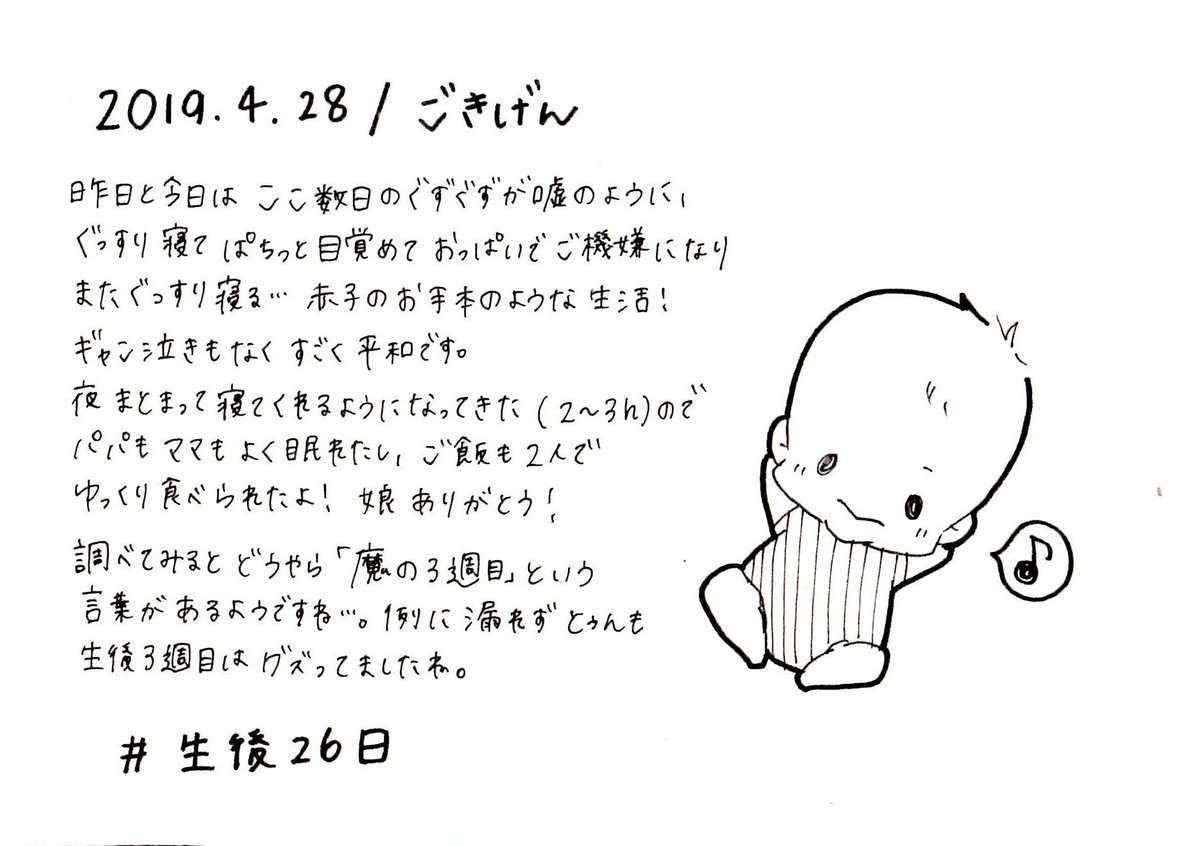 2019.4.28/ごきげん
昨日と今日は ここ数日のぐずぐずが嘘のように、
ぐっすり寝て ぱちっと目覚めて おっぱいでご機嫌になり
またぐっすり寝る… 赤子のお手本のような生活!
ギャン泣きもなく すごく平和です。
夜 まとまって寝てくれるようになってきた (2〜3h)ので
パパもママもよく眠れたし、ご飯も2人で
ゆっくり食べられたよ! 娘ありがとう!
調べてみると どうやら「魔の3週目」という
言葉があるようですね…。例に漏れず とぅんも
生後3週目は グズってましたね。
# 生後26日